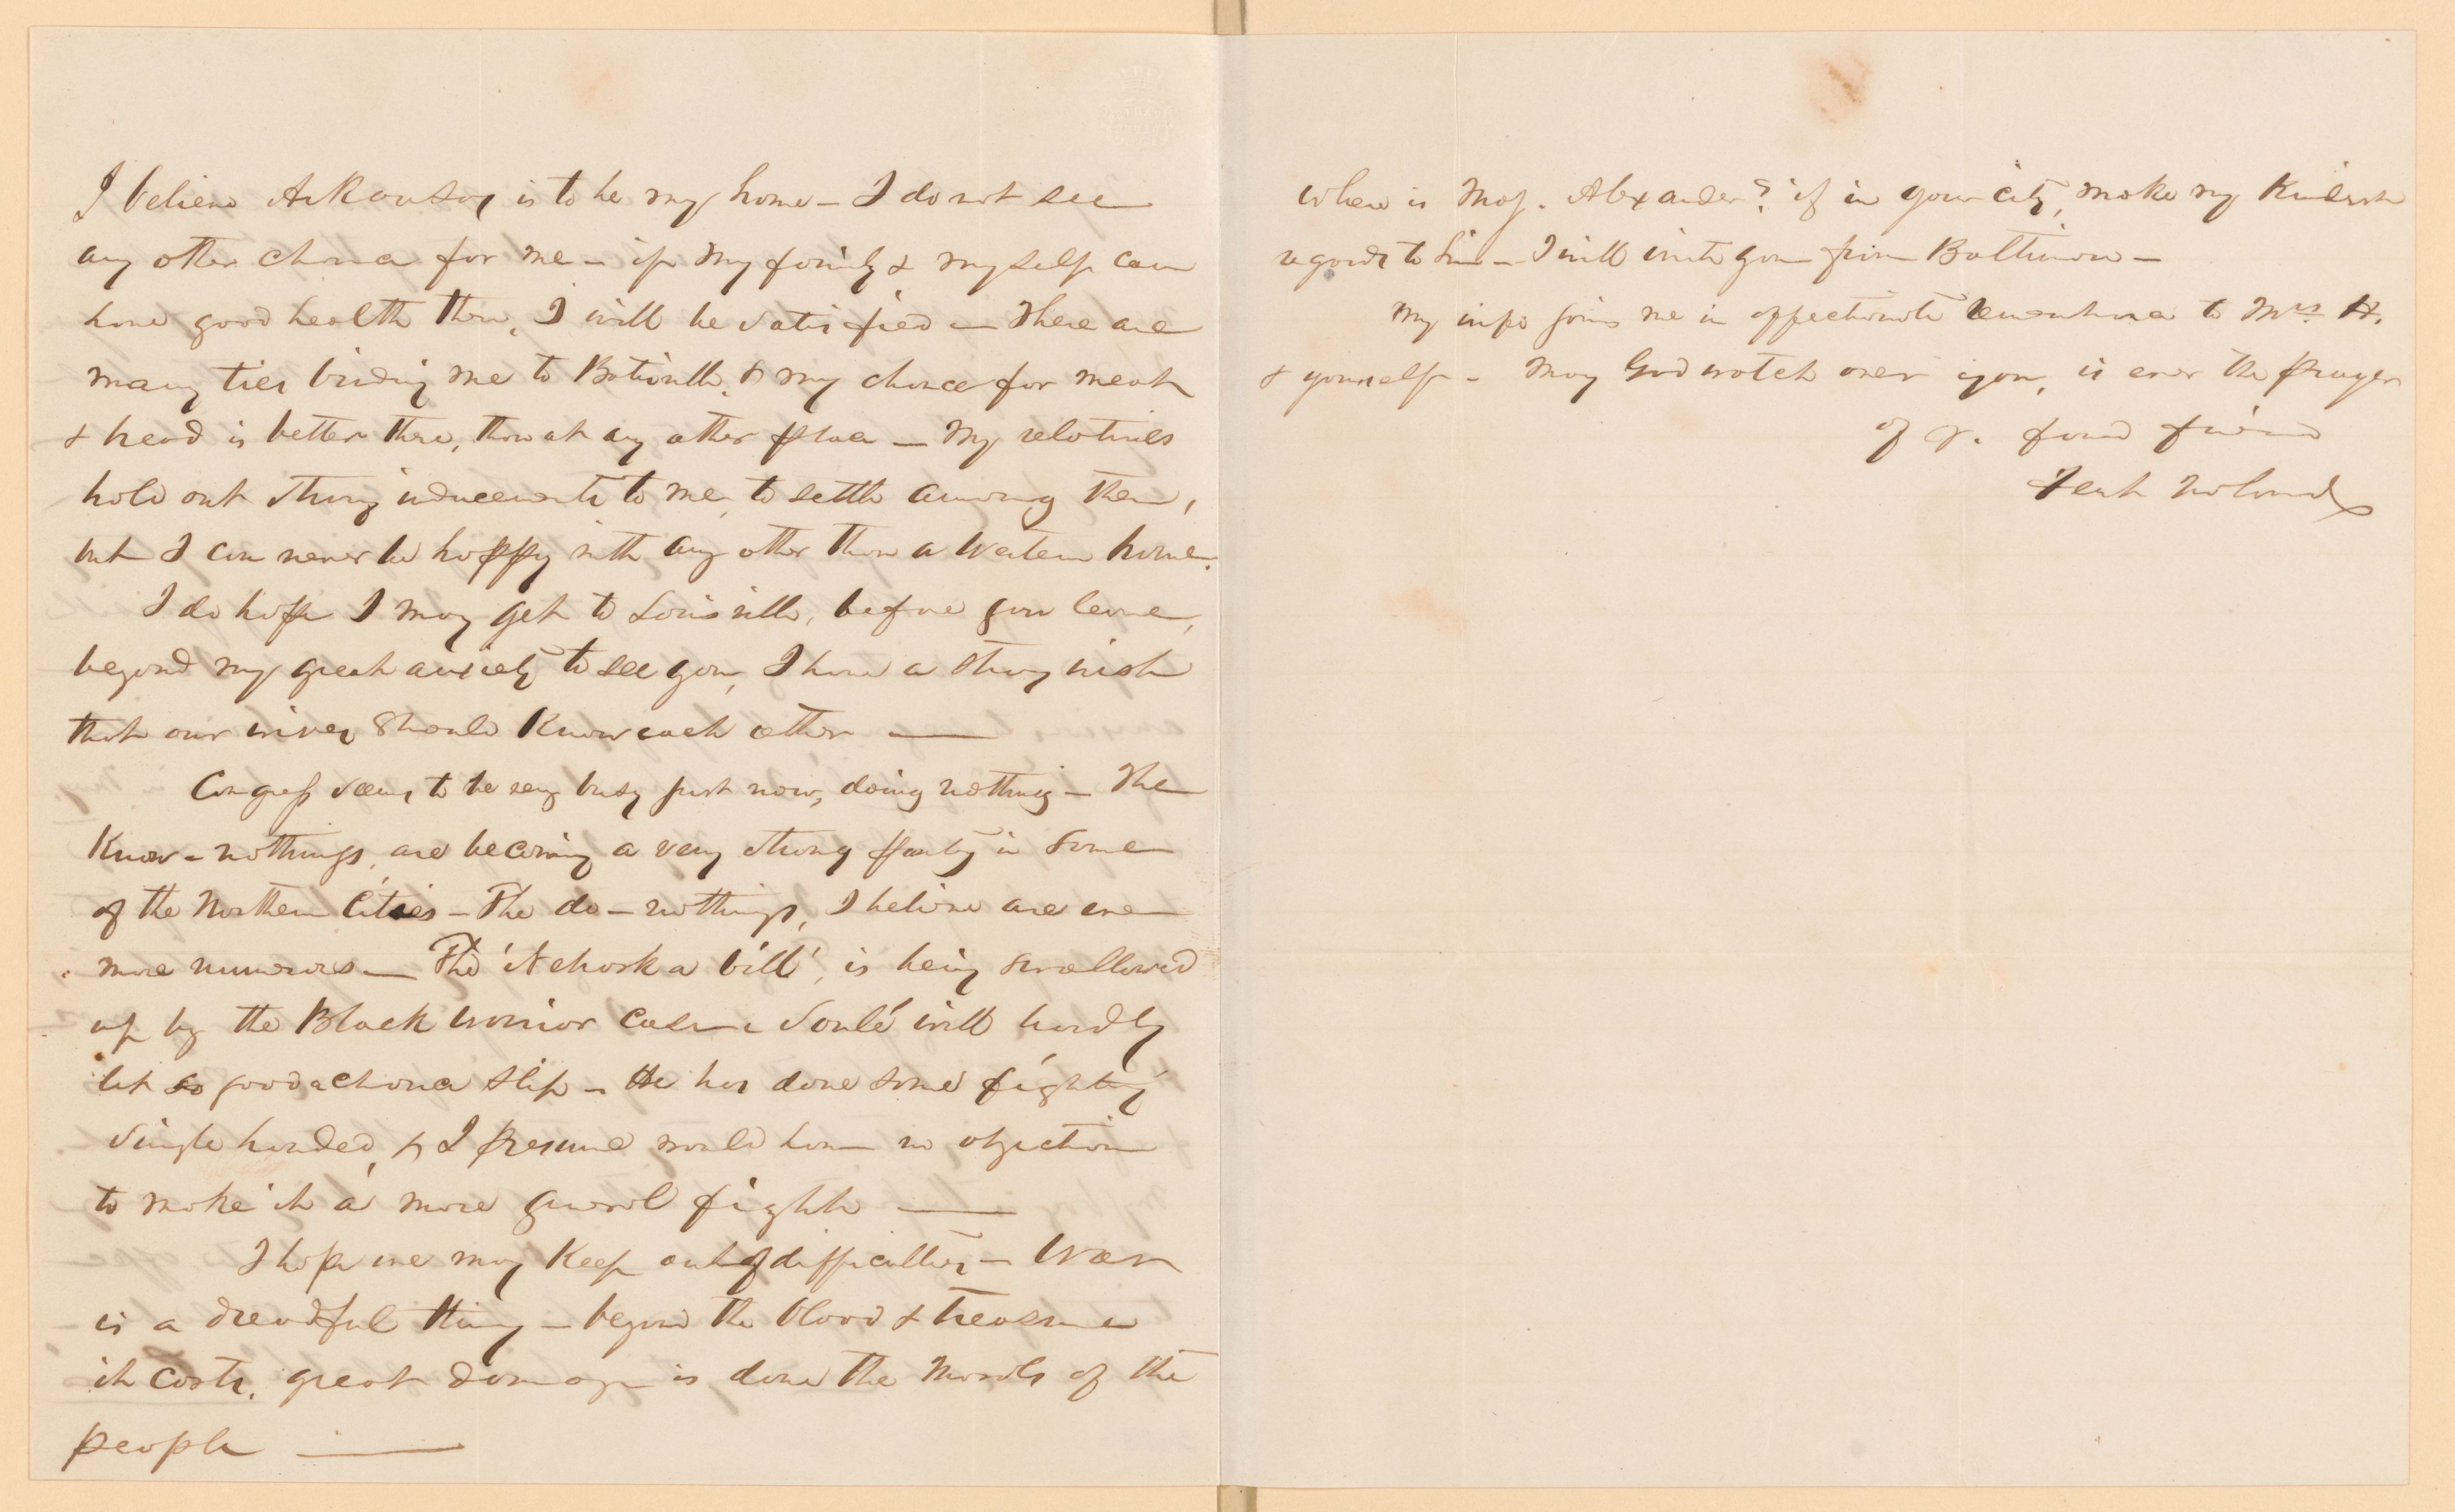 I believe Arkansas is to be my home - I do not see
any other chance for me - if my family & myself can
have good health there, I will be satisfied - There are
many ties binding me to Batesville, & my chance for meat
& bread is better there, than at any other place - My relatives
hold out strong inducements to me, to settle among them,
but I can never be happy with any other than a Western home.
I do hope I may get to Louisville, before you leave,
beyond my great anxiety to see you, I have a strong wish
that our wives should know each other —
Congress seems to be very busy just now, doing nothing - The
Know-nothings, are becoming a very strong party in some
of the Northern Cities - The do-nothings, I believe are even
more numerous — The 'Nebraska bill', is being swallowed
up by the Black Warrior case - Soulé will hardly
let so good a chance slip - He has done some fighting
single handed, & I presume would have no objection
to make it a more general fight —
I hope we may keep out of difficulties - War
is a dreadful thing - beyond the blood & treasure
it costs, great damage is done the morals of the
people —
Where is Maj. Alexander? if in your city, make my kindest
regards to him - I will write you from Baltimore -
My wife joins me in affectionate remembrance to Mrs. H.
& yourself - May God watch over you, is ever the prayer
of yr. fond friend
Fent Noland